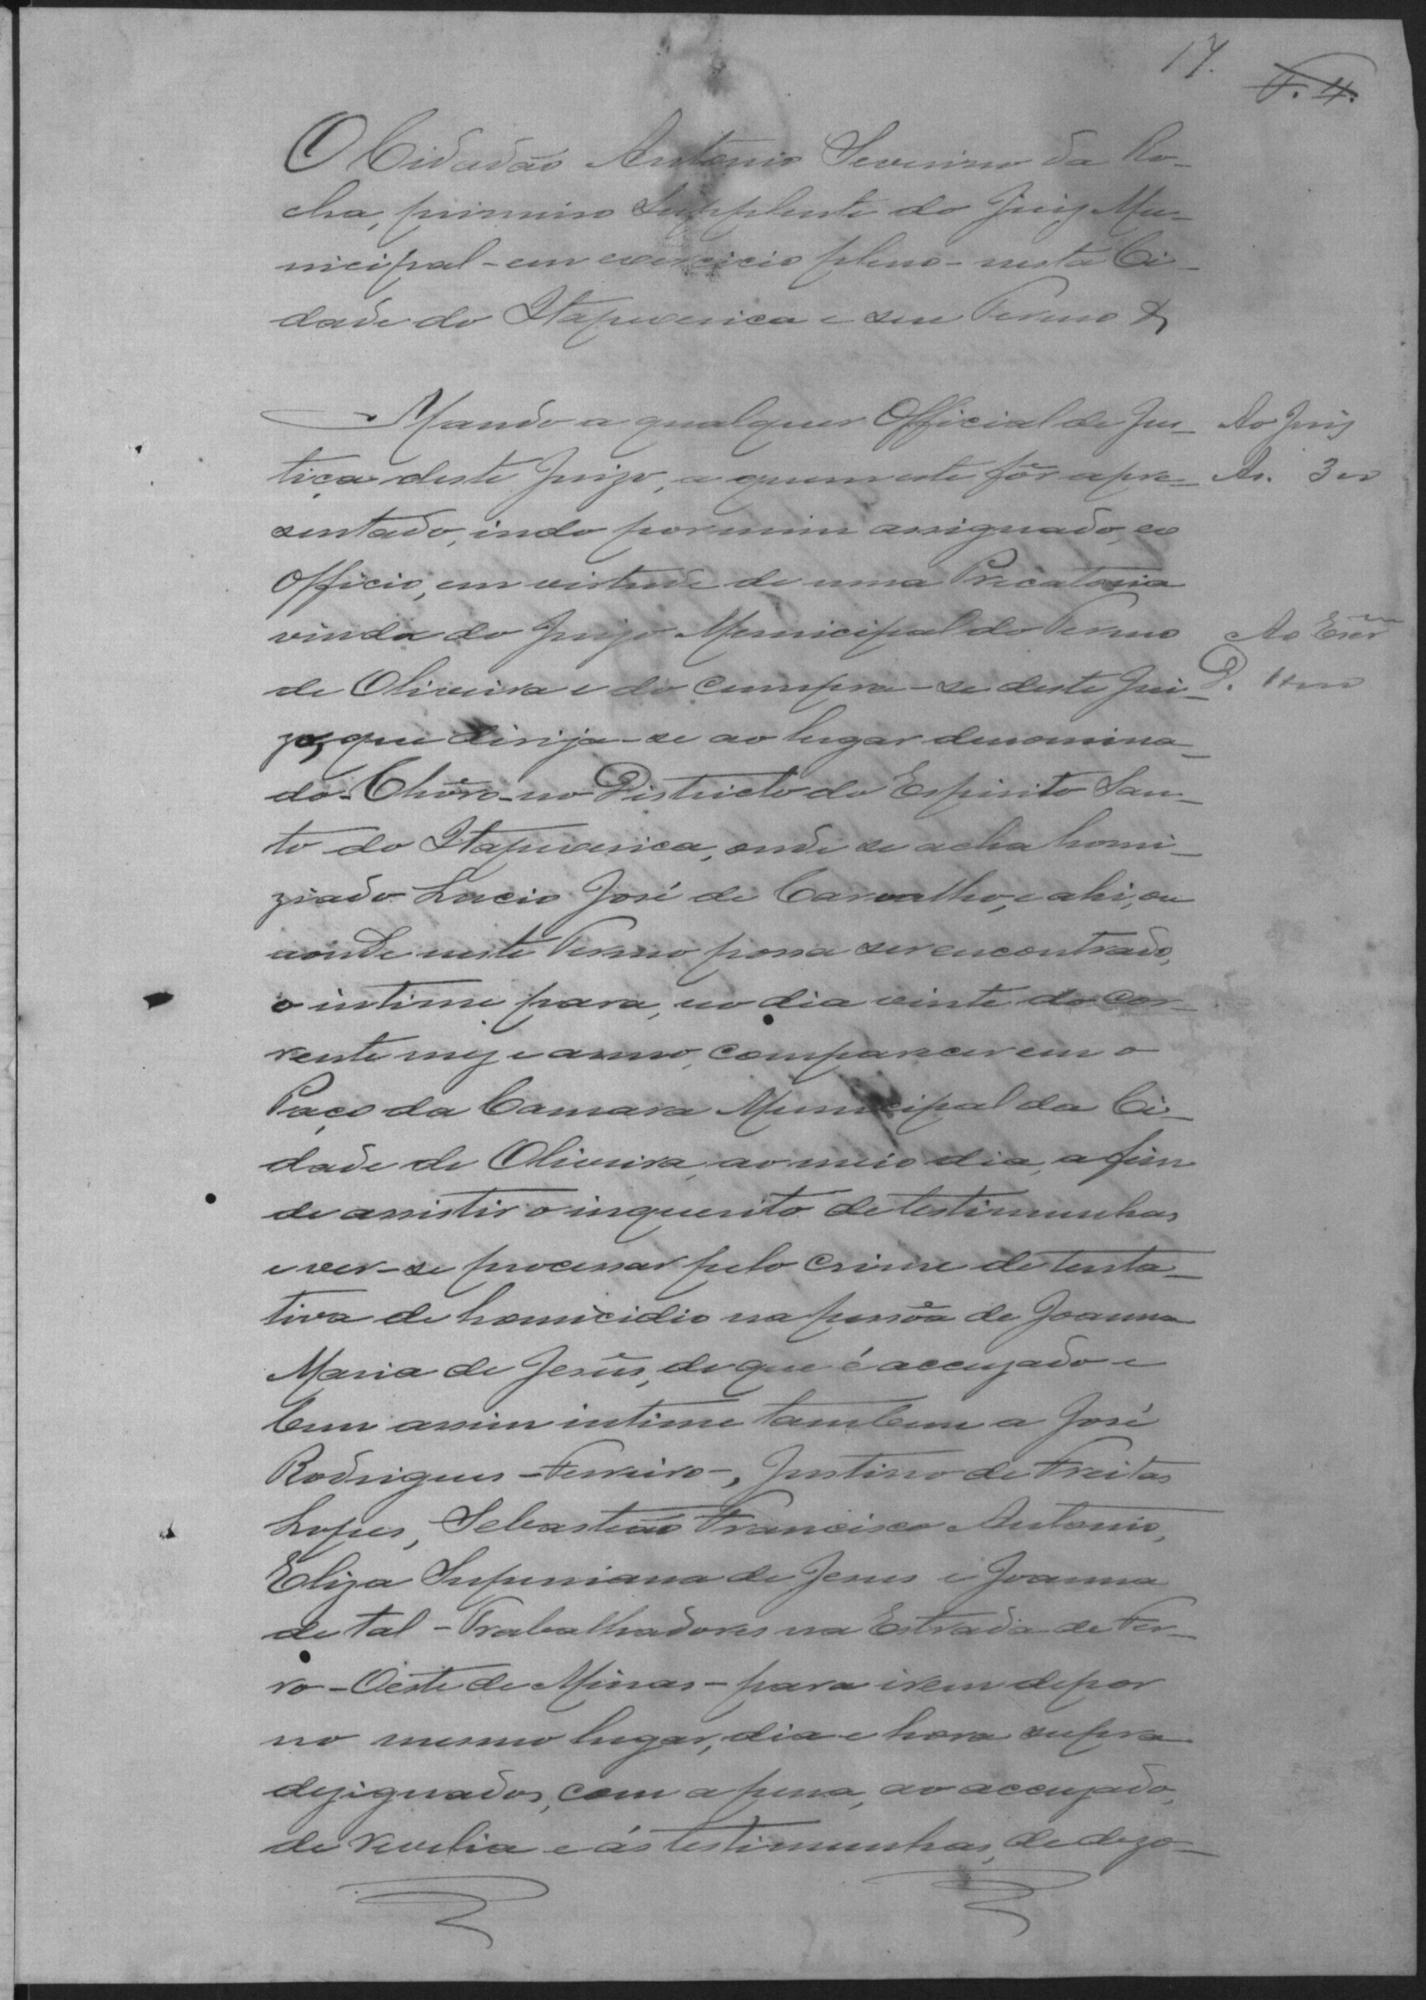 17.
F. 4.
O Cidadão Antonio Severino da Ro-
cha, primeiro Supplente do Juiz Mu-
nicipal - em exercicio pleno - nesta Ci-
dade do Itapecerica e seu Termo &
Mando a qualquer Official de Jus-
tiça deste Juizo, a quem este fôr apre-
sentado, indo por mim assignado, ex
Officio, em virtude de uma Precatoria
vinda do Juizo Municipal do Termo
de Oliveira e do cumpra-se deste Jui-
zo, que dirija-se ao lugar denomina-
do - Chôro - no Districto do Espirito San-
to do Itapecerica, onde se acha homi-
ziado Lucio José de Carvalho, e ahi, ou
aonde neste Termo possa ser encontrado,
o intime para, no dia vinte do cor-
rente mez e anno, comparecer em o
Paço da Camara Municipal da Ci-
dade de Oliveira, ao meio dia, a fim
de assistir o inquerito de testimunhas
e ver-se processar pelo crime de tenta-
tiva de homicidio na pessôa de Joanna
Maria de Jesus, de que é accuzado e
bem assim intime tambem a José
Rodrigues - Ferreiro -, Justino de Freitas
Lopes, Sebastião Francisco Antonio,
Eliza de Jesus e Joanna
de tal - Trabalhadores na Estrada de Fer-
ro - Oéste de Minas - para irem depor
no mesmo lugar, dia e hora supra
dezignados, com a pena, ao accuzado,
de revelia e ás testimunhas, de dezo-
Ao Juiz
As. 300
Ao Escr